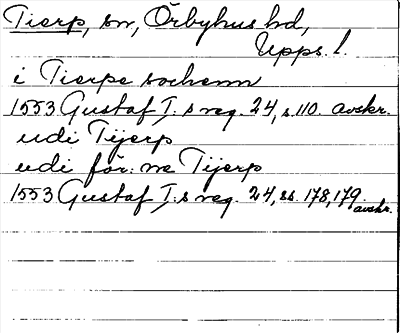 Tierp, sn, Örbyhus hd,
Upps. l.
i Tierpe sochenn
1553 Gustaf I:s reg. 24, s. 110. avskr.
udi Tijerp
udi för:ne Tijerp
1553 Gustaf I:s reg. 24, ss. 178, 179. avskr.